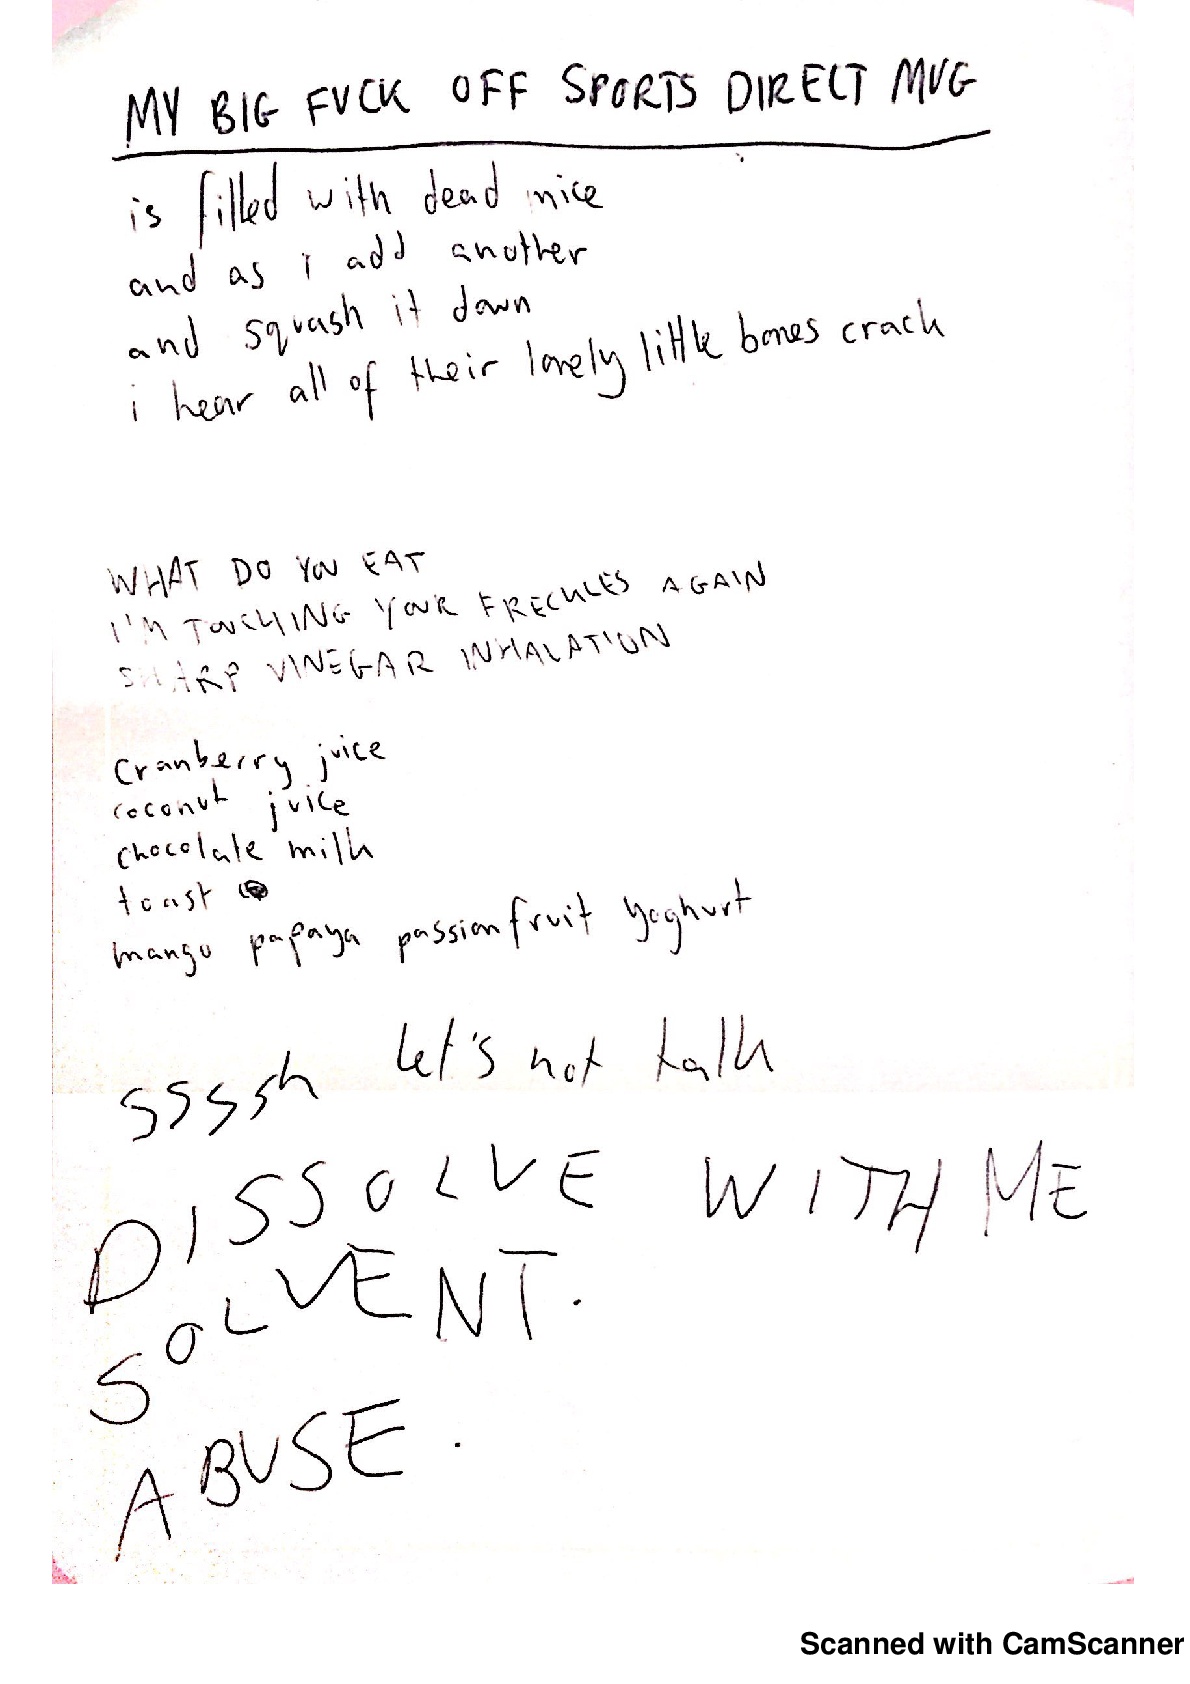 MY BIG FUCK OFF SPORTS DIRECT MUG
is filled with dead mice
and as i add another
and squash it down
i hear all of their lovely little bones crack
WHAT DO YOU EAT
I'M TOUCHING YOUR FRECKLES AGAIN
SHARP VINEGAR INHALATION
Cranberry juice
coconut juice
chocolate milk
toast
mango papaya passionfruit yoghurt
sssssh let's not talk
DISSOLVE WITH ME
SOLVENT.
ABUSE.
Scanned with CamScanner